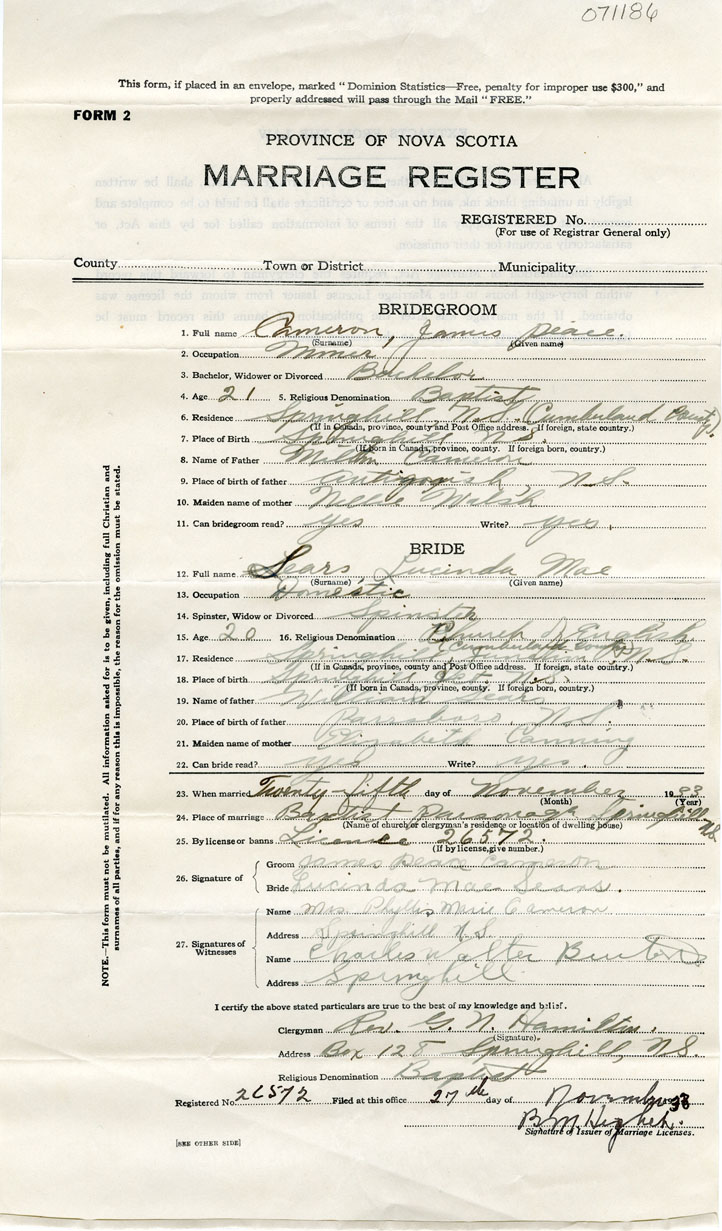 071186
This form, if placed in an envelope, marked "Dominion Statistics—Free, penalty for improper use $300," and
properly addressed will pass through the Mail "FREE."
FORM 2
PROVINCE OF NOVA SCOTIA
MARRIAGE REGISTER
REGISTERED No.
(For use of Registrar General only)
County Town or District Municipality
BRIDEGROOM
1. Full name Cameron, James Peace.
(Surname) (Given name)
2. Occupation Miner
3. Bachelor, Widower or Divorced Bachelor
4. Age 21 5. Religious Denomination Baptist
6. Residence Springhill N.S. (Cumberland County)
(If in Canada, province, county and Post Office address. If foreign, state country.)
7. Place of Birth Springhill N.S.
(If born in Canada, province, county. If foreign born, country.)
8. Name of Father Milton Cameron
9. Place of birth of father Antigonish, N.S.
10. Maiden name of mother Nellie Welsh
11. Can bridegroom read? yes Write? yes
BRIDE
12. Full name Sears Lucinda Mae
(Surname) (Given name)
13. Occupation Domestic
14. Spinster, Widow or Divorced Spinster
15. Age 20 16. Religious Denomination Church of English
(Cumberland County)
17. Residence Springhill N.S.
(If in Canada, province, county and Post Office address. If foreign, state country.)
18. Place of birth Springhill N.S.
(If born in Canada, province, county. If foreign born, country.)
19. Name of father William Sears
20. Place of birth of father Parrsboro, N.S.
21. Maiden name of mother Elizabeth Canning
22. Can bride read? yes Write? yes.
23. When married Twenty-fifth day of November 1933
(Month) (Year)
24. Place of marriage Baptist Parsonage Springhill NS
(Name of church or clergyman's residence or location of dwelling house)
25. By license or banns License 26572.
(If by license, give number.)
26. Signature of
Groom James Peace Cameron
Bride Lucinda Mae Sears.
27. Signatures of Witnesses
Name Mrs. Phyllis Marie Cameron
Address Springhill N.S.
Name Charles Walter
Address Springhill
I certify the above stated particulars are true to the best of my knowledge and belief.
Clergyman Rev. G. N. Hamilton.
(Signature)
Address Box 128 Springhill, N.S.
Religious Denomination Baptist
Registered No. 26572 Filed at this office 27th day of November 33
B M
Signature of Issuer of Marriage Licenses.
[SEE OTHER SIDE]
NOTE.—This form must not be mutilated. All information asked for is to be given, including full Christian and
surnames of all parties, and if for any reason this is impossible, the reason for the omission must be stated.